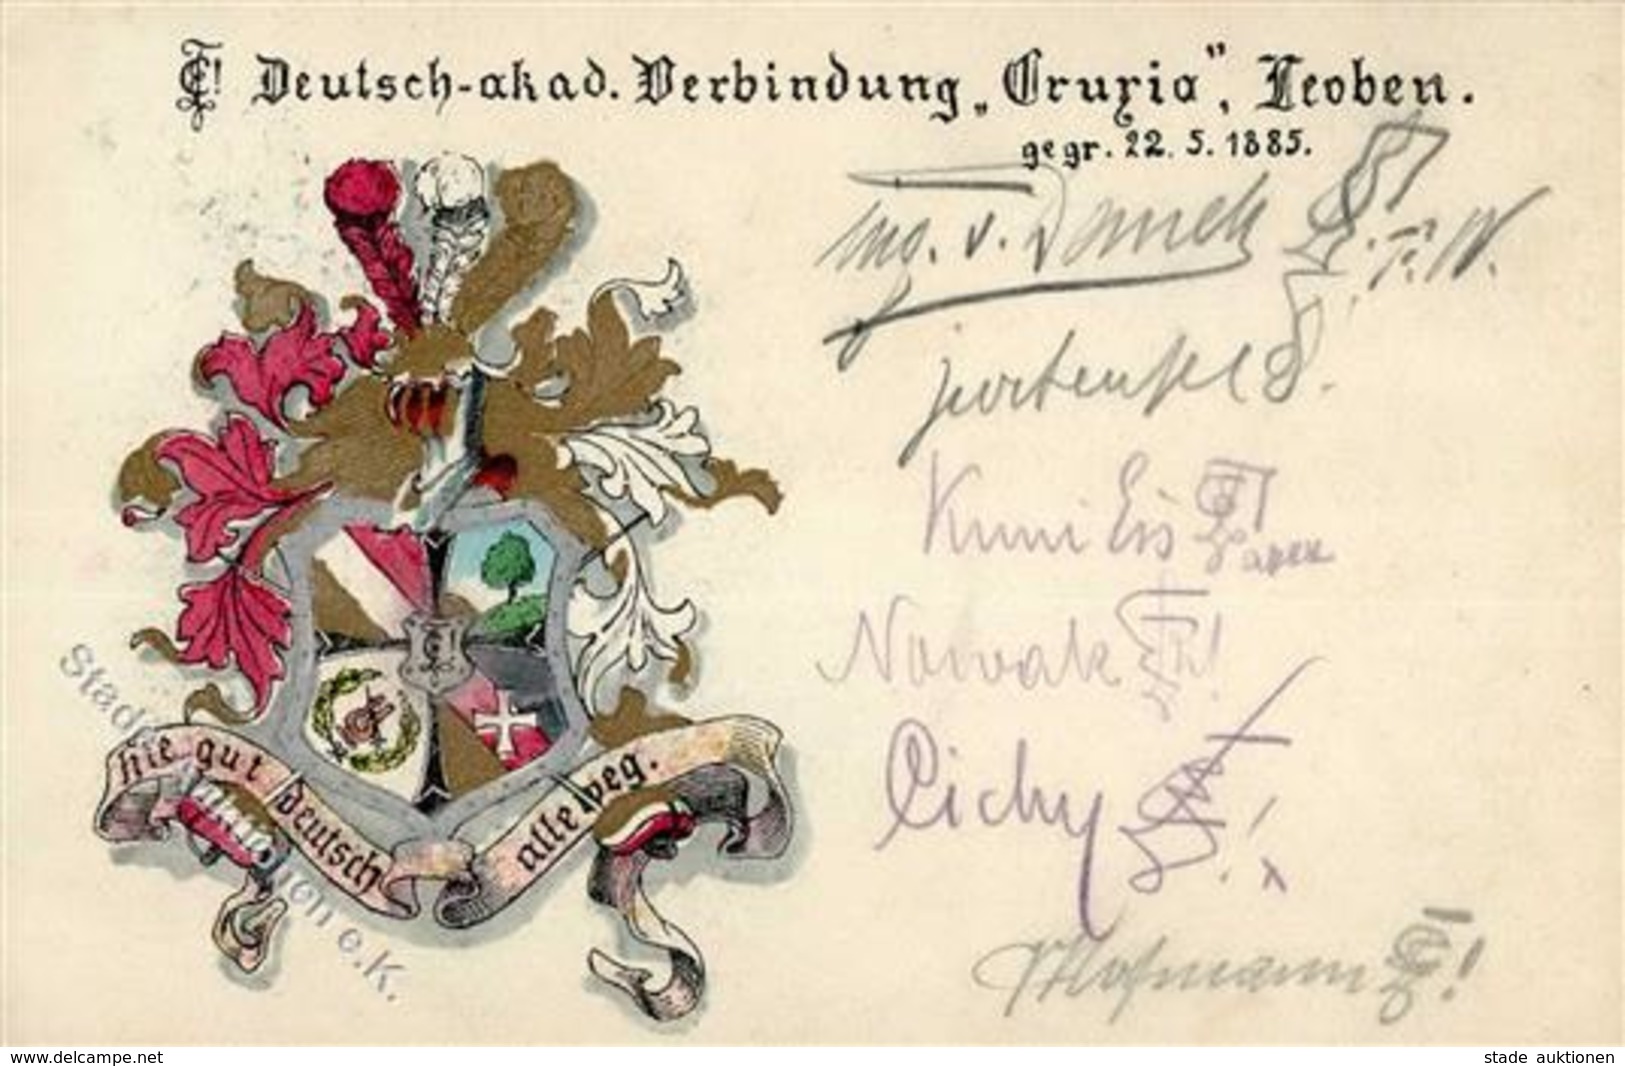 Deutsch-akad. Verbindung „Cruxia“, Leoben.
gegr. 22. 5. 1885.
Ing. v.
Kuni Eis
Nowak
Cichy
Hofmann
hie gut Deutsch alleweg.
Stade Auktionen e.K.
www.delcampe.net
stade auktionen